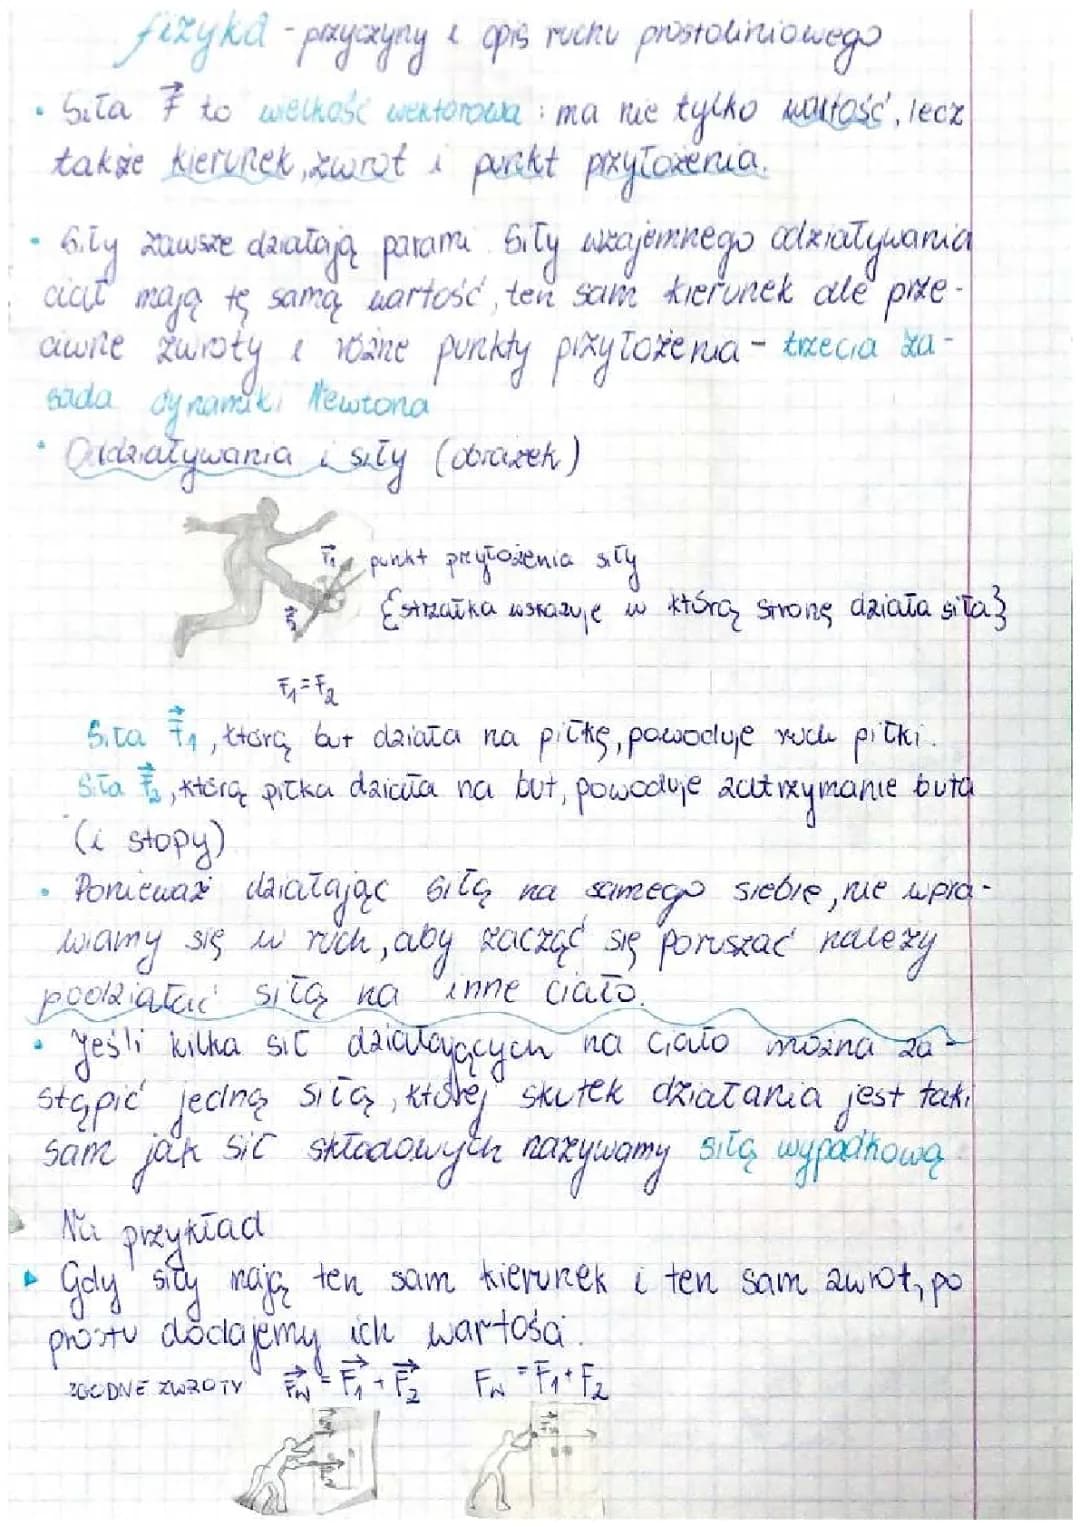 fizyka - przyczyny i opis ruchu prostoliniowego
• Siła F to wielkość wektorowa : ma nie tylko wartość, lecz
także kierunek, zwrot i punkt przyłożenia.
• Siły zawsze działają parami. Siły wzajemnego odziaływania
ciał mają tę samą wartość, ten sam kierunek ale prze-
ciwne zwroty i różne punkty przyłożenia - trzecia za-
sada dynamiki Newtona
• Oddziaływania i siły (obrazek)
F₁ punkt przyłożenia siły
{strzałka wskazuje w którą stronę działa siła}
F₁ = F₂
Siła F₁, którą but działa na piłkę, powoduje ruch piłki.
Siła F₂, którą piłka działa na but, powoduje zatrzymanie buta
(i stopy)
• Ponieważ działając siłą na samego siebie, nie wpra-
wiamy się w ruch, aby zacząć się poruszać należy
podziałać siłą na inne ciało.
• Jeśli kilka sił działających na ciało można za-
stąpić jedną siłą, której skutek działania jest taki
sam jak sił składowych nazywamy siłą wypadkową
Na przykład
▸ Gdy siły mają ten sam kierunek i ten sam zwrot, po
prostu dodajemy ich wartości.
ZGODNE ZWROTY F_W = F₁ + F₂ F_W = F₁ + F₂